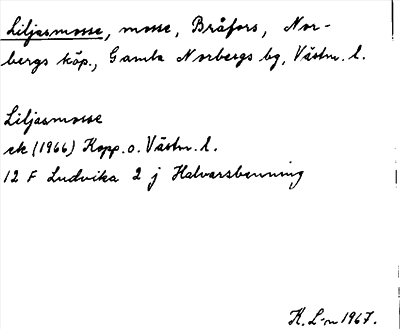 Liljasmosse, mosse, Bråfors, Nor-
bergs köp., Gamla Norbergs bg, Västm. l.
Liljasmosse
ek (1966) Kopp. o. Västm. l.
12 F Ludvika 2 j Halvarsbenning
K. L-m 1967.